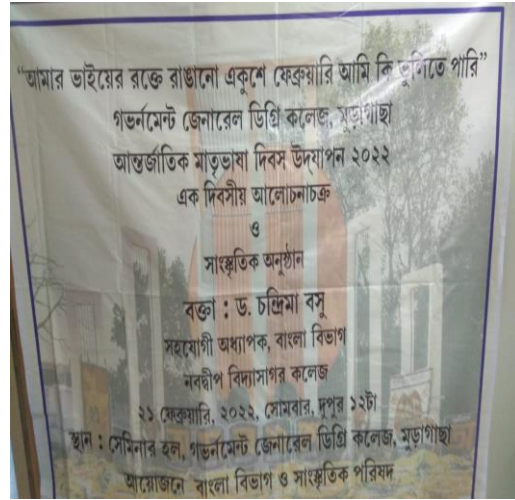 “আমার ভাইয়ের রক্তে রাঙানো একুশে ফেব্রুয়ারি আমি কি ভুলিতে পারি”
গভর্নমেন্ট জেনারেল ডিগ্রি কলেজ, মুড়াগাছা
আন্তর্জাতিক মাতৃভাষা দিবস উদযাপন ২০২২
এক দিবসীয় আলোচনাচক্র
ও
সাংস্কৃতিক অনুষ্ঠান
বক্তা : ড. চন্দ্রিমা বসু
সহযোগী অধ্যাপক, বাংলা বিভাগ
নবদ্বীপ বিদ্যাসাগর কলেজ
২১ ফেব্রুয়ারি, ২০২২, সোমবার, দুপুর ১২টা
স্থান : সেমিনার হল, গভর্নমেন্ট জেনারেল ডিগ্রি কলেজ, মুড়াগাছা
আয়োজনে বাংলা বিভাগ ও সাংস্কৃতিক পরিষদ